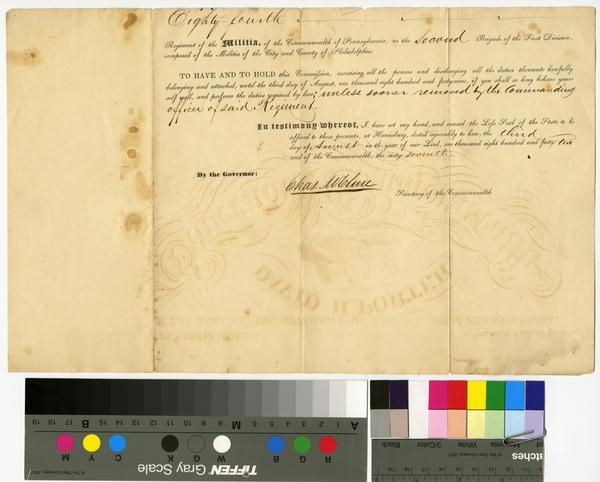 Eighty fourth
Regiment of the Militia, of the Commonwealth of Pennsylvania, in the Second Brigade of the First Division,
composed of the Militia of the City and County of Philadelphia.
TO HAVE AND TO HOLD this Commission, exercising all the powers and discharging all the duties thereunto lawfully
belonging and attached, until the third day of August, one thousand eight hundred and forty-nine, if you shall so long behave your-
self well, and perform the duties required by law; unless sooner removed by the Commanding
officer of said Regiment.
In testimony whereof, I have set my hand, and caused the Less Seal of the State to be
affixed to these presents, at Harrisburg, dated agreeably to law, the third
day of August in the year of our Lord, one thousand eight hundred and forty two
and of the Commonwealth, the sixty seventh
By the Governor:
Chas. McClure
Secretary of the Commonwealth.
DAVID R PORTER
19 18 17 16 15 B 14 13 12 11 10 9 8 M 7 6 5 4 3 2 1 A
R G B W G K C Y M
TIFFEN Gray Scale
Black 3/Color White